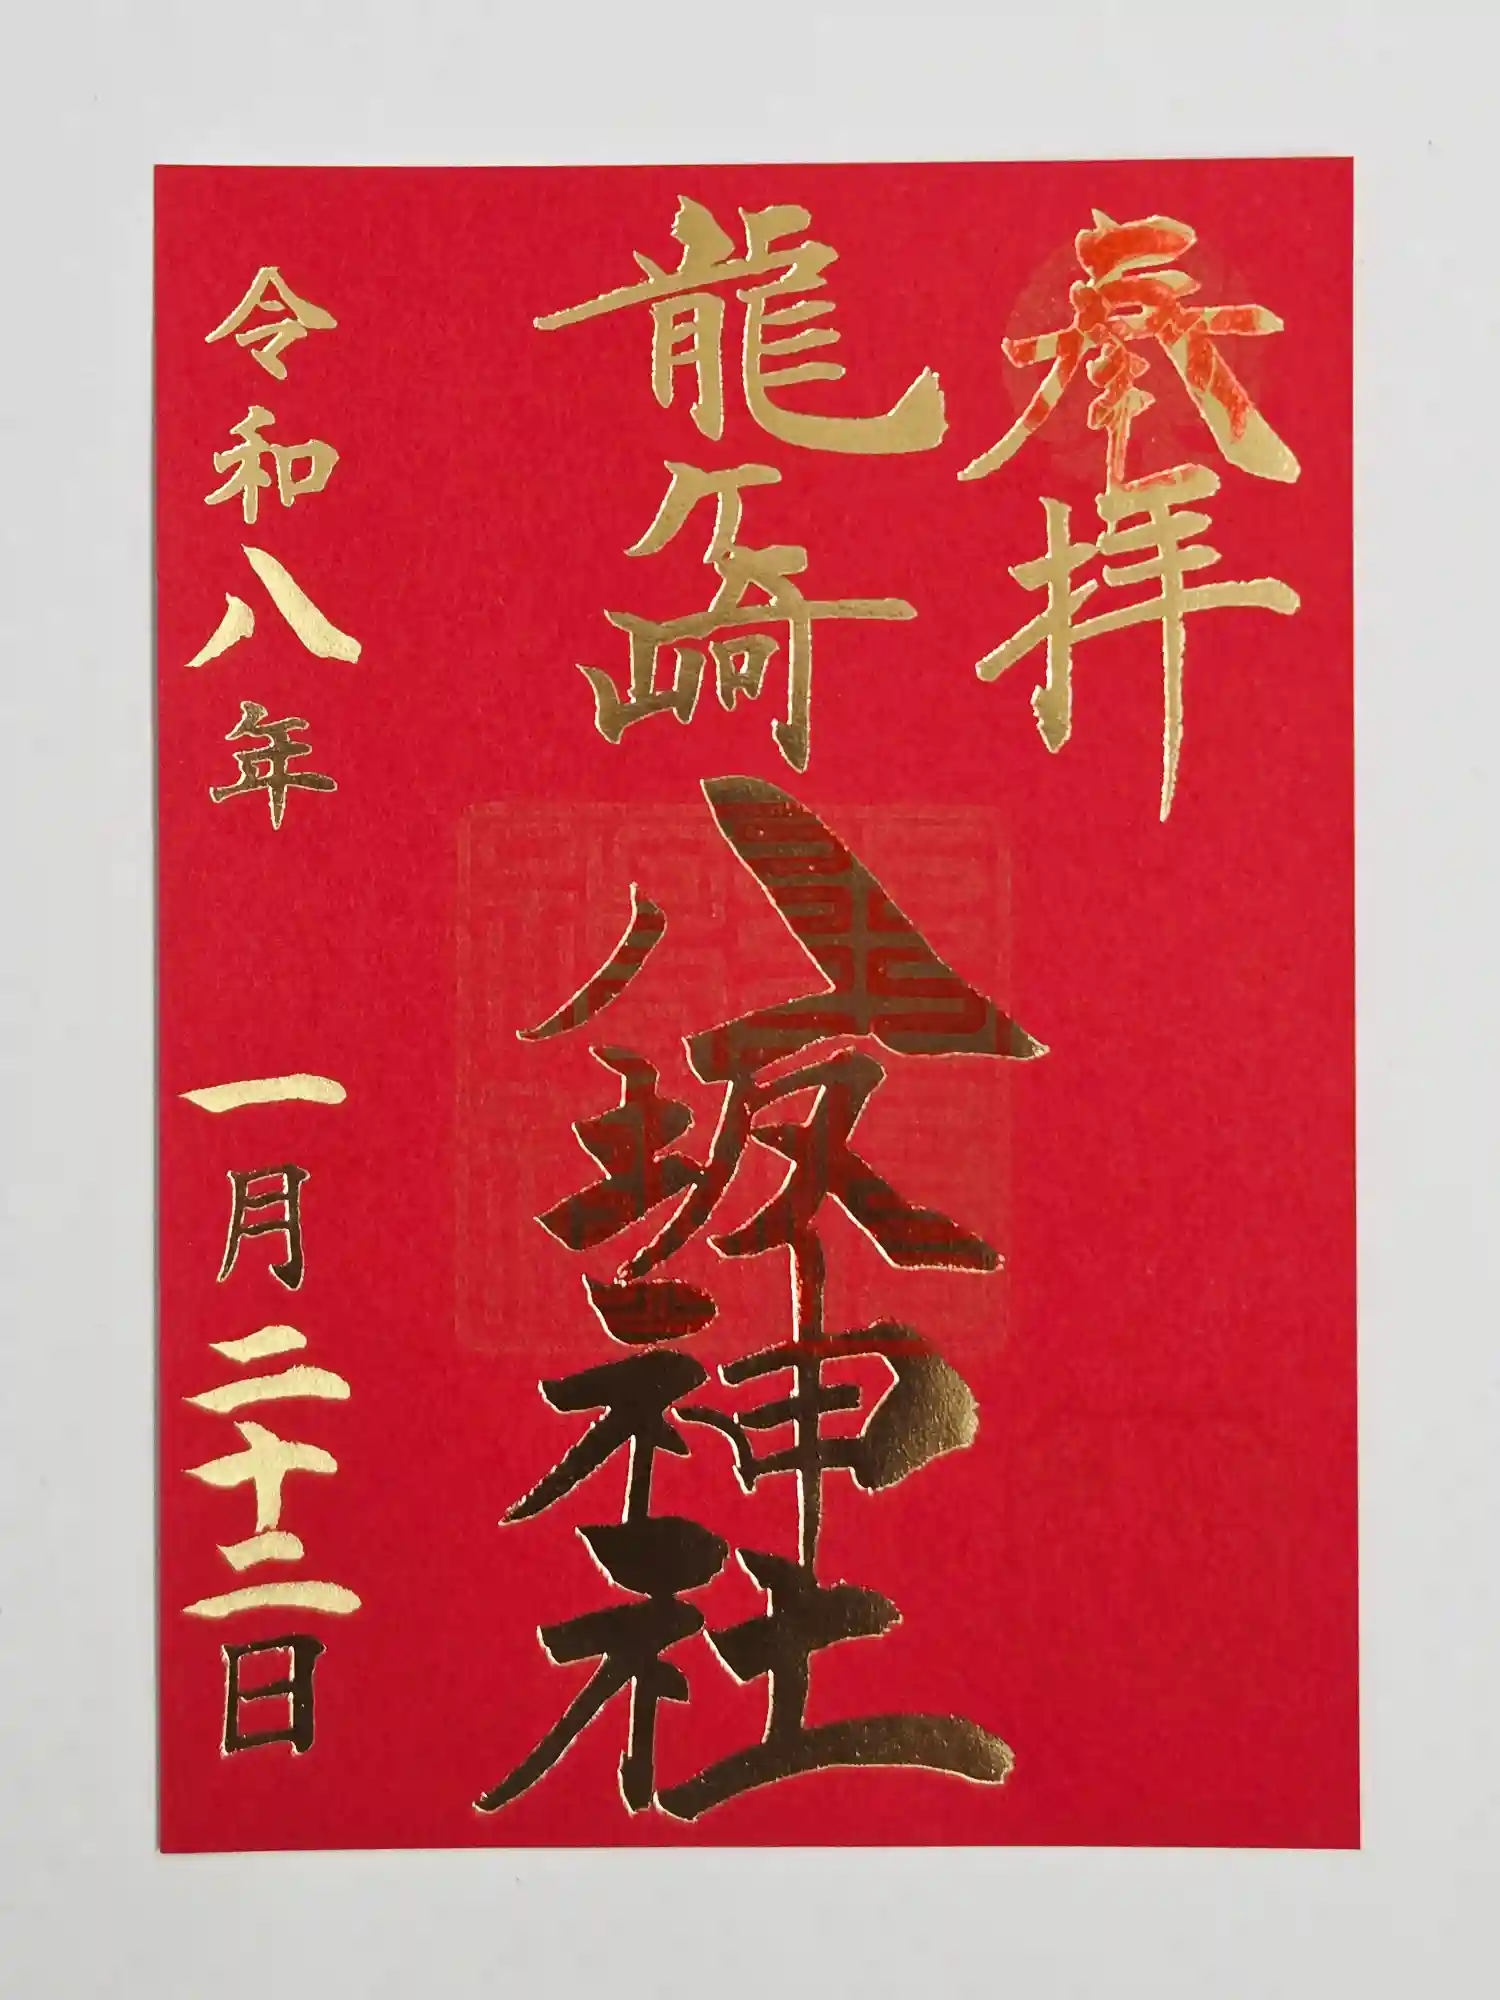 奉拝
龍ケ崎八坂神社
令和八年 一月二十二日